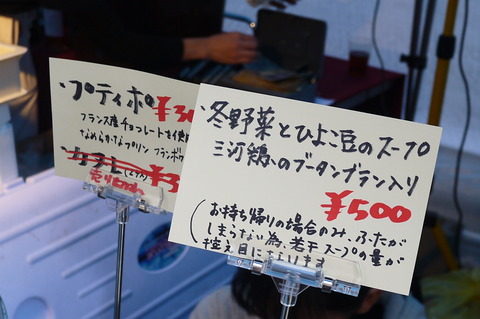 ・プティポ ¥30
フランス産チョコレートを使
なめらかなプリン フランボワ
売り切れ
・冬野菜とひよこ豆のスープ
三河鶏のブータンブラン入り
¥500
(お持ち帰りの場合のみ、ふたが
しまらない為、若干スープの量が
控え目になります